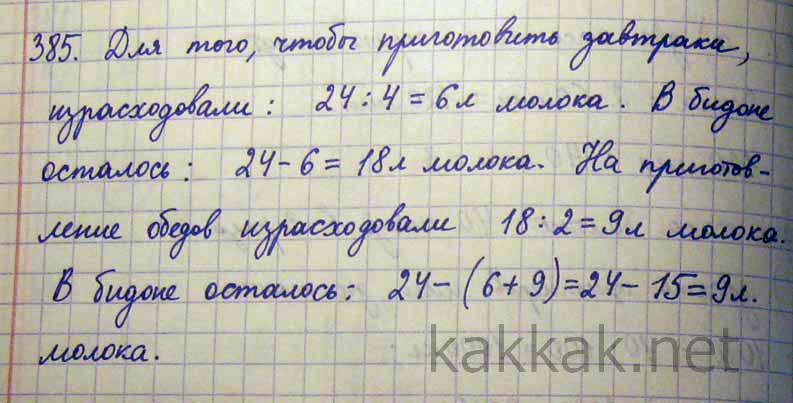 385. Для того, чтобы приготовить завтраки,
израсходовали: 24 : 4 = 6л молока. В бидоне
осталось: 24 - 6 = 18л молока. На приготов-
ление обедов израсходовали 18 : 2 = 9л молока.
В бидоне осталось: 24 - (6 + 9) = 24 - 15 = 9л.
молока.
kakkak.net